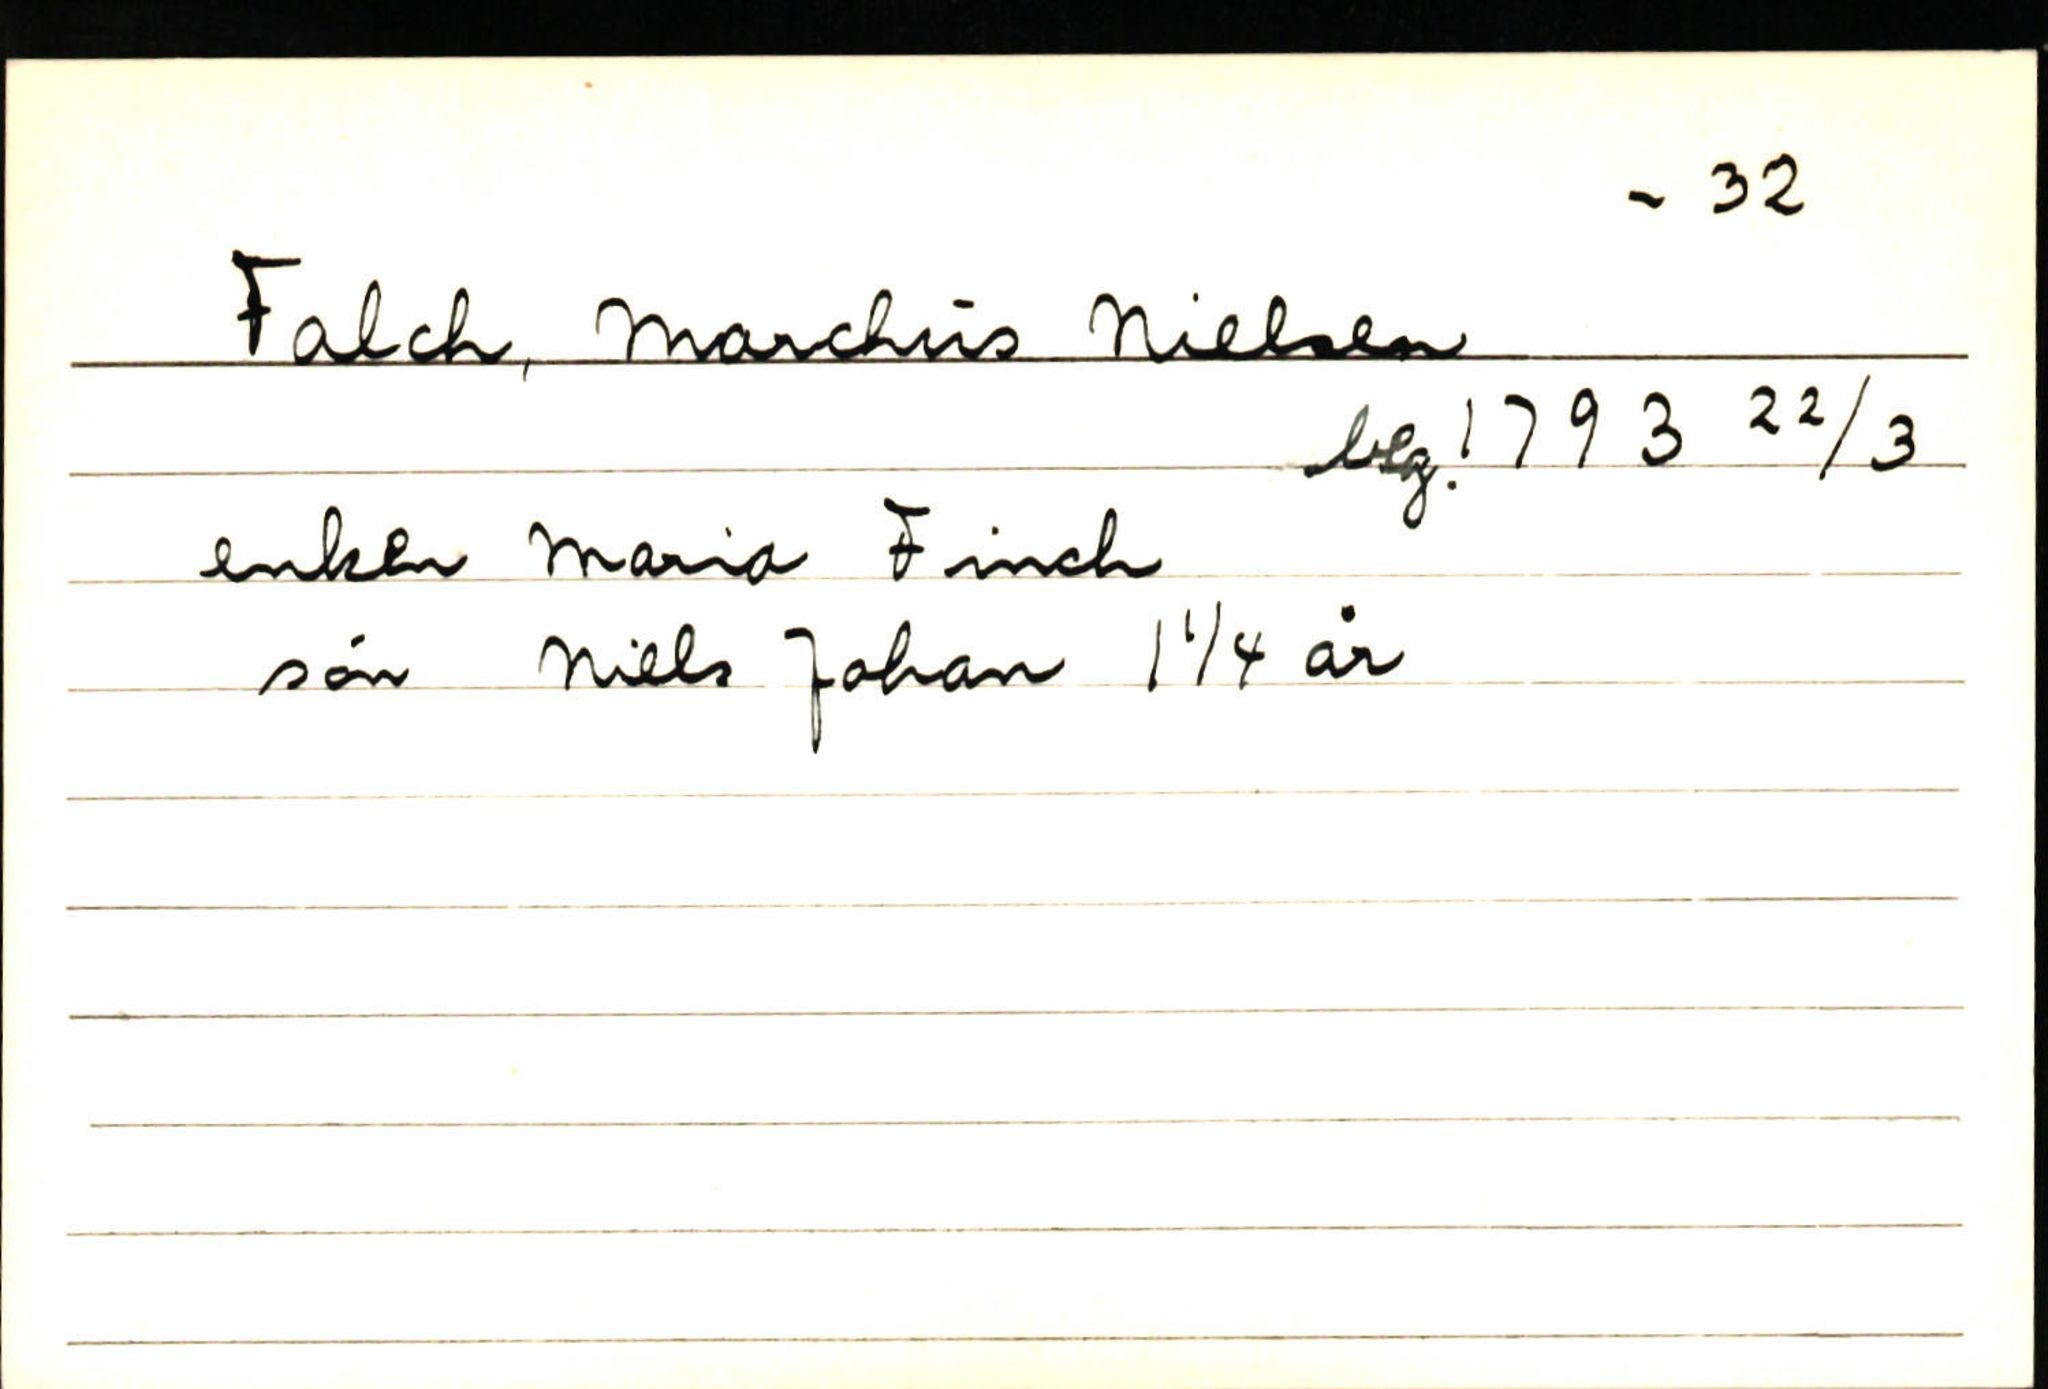 ~ 32
Falch, Marchus Nielsen
beg. 1793 22/3
enken Maria Finch
són Niels Johan 1 1/4 år